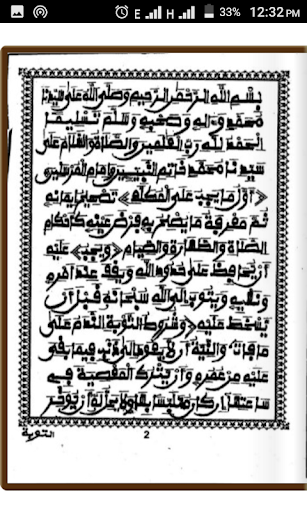 E H 33% 12:32 PM
بسم الله الرحمن الرحيم وصلى الله على سيدنا
محمد وءاله وصحبه وسلم تسليما
الحمد لله رب العلمين والصلاة والسلام على
سيدنا محمد خاتم النبيئين وإمام المرسلين
﴿أول ما يجب على المكلف﴾ تصحيح إيمانه
ثم معرفة ما يصلح به فرض عينه كأحكام
الصلاة والطهارة والصيام ﴿ويجب﴾ عليه
أن يحافظ على حدود الله ويقف عند أمره
ونهيه ويتوب إلى الله سبحانه قبل أن
يسخط عليه ﴿وشروط التوبة الندم على
ما فات والنية أن لا يعود إلى ذنب فيما بقي
عليه من عمره وأن يترك المعصية في
ساعتها إن كان متلبسا بها ولا يحل له أن يؤخر
التوبة 2